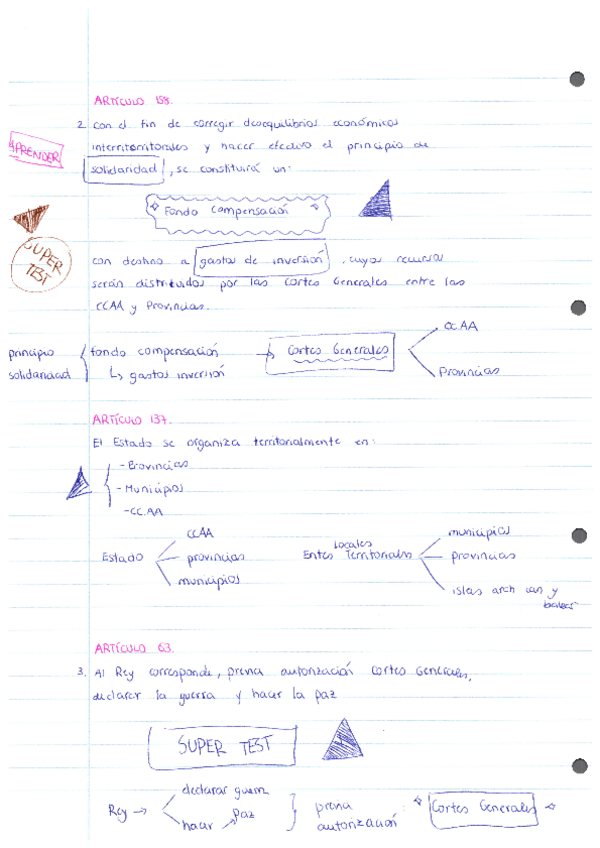 ARTÍCULO 158.
2. Con el fin de corregir desequilibrios económicos
APRENDER
interterritoriales y hacer efectivo el principio de
solidaridad, se constituirá un:
Fondo compensación
SUPER TEST
con destino a gastos de inversión, cuyos recursos
serán distribuidos por las Cortes Generales entre las
CCAA y Provincias.
CCAA
principio fondo compensación → Cortes Generales
solidaridad ↳ gastos inversión
Provincias
ARTÍCULO 137.
El Estado se organiza territorialmente en:
- Provincias
- Municipios
- CC.AA
Estado
CCAA
provincias
municipios
Entes locales Territoriales
municipios
provincias
islas arch can y
balear
ARTÍCULO 63.
3. Al Rey corresponde, previa autorización Cortes Generales,
declarar la guerra y hacer la paz
SUPER TEST
Rey →
declarar guerra
hacer paz
previa
autorización:
Cortes Generales